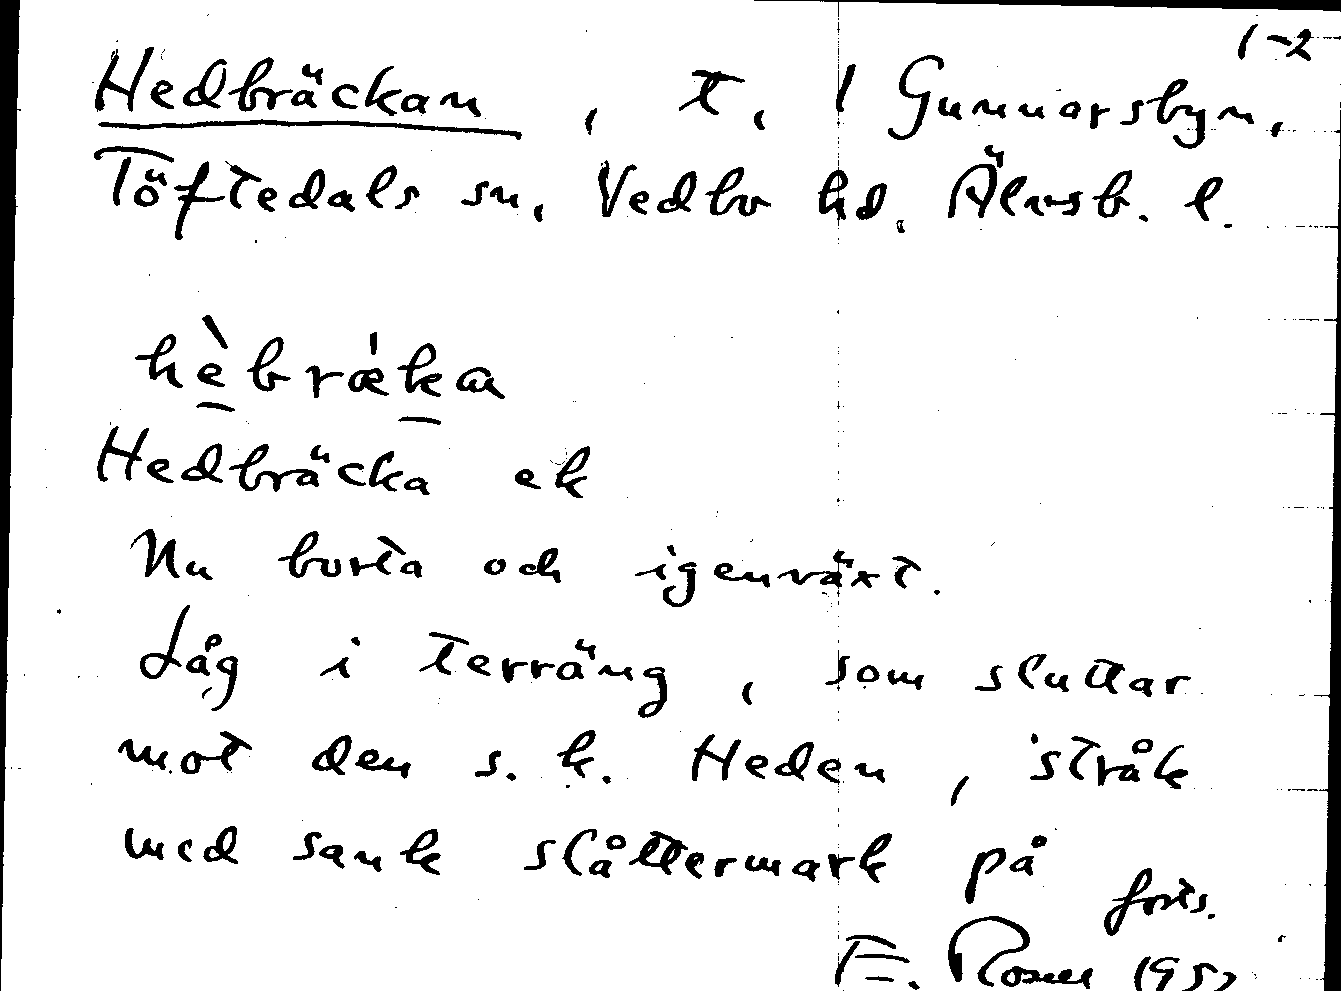 1-2
Hedbräckan, t. / Gunnarsbyn,
Töftedals sn, Vedbo hd. Älvsb. l.
hèbrǽka
Hedbräcka ek
Nu borta och igenväxt.
Låg i terräng, som sluttar
mot den s. k. Heden, stråk
med sank slåttermark på
forts.
E. Rosell 1957